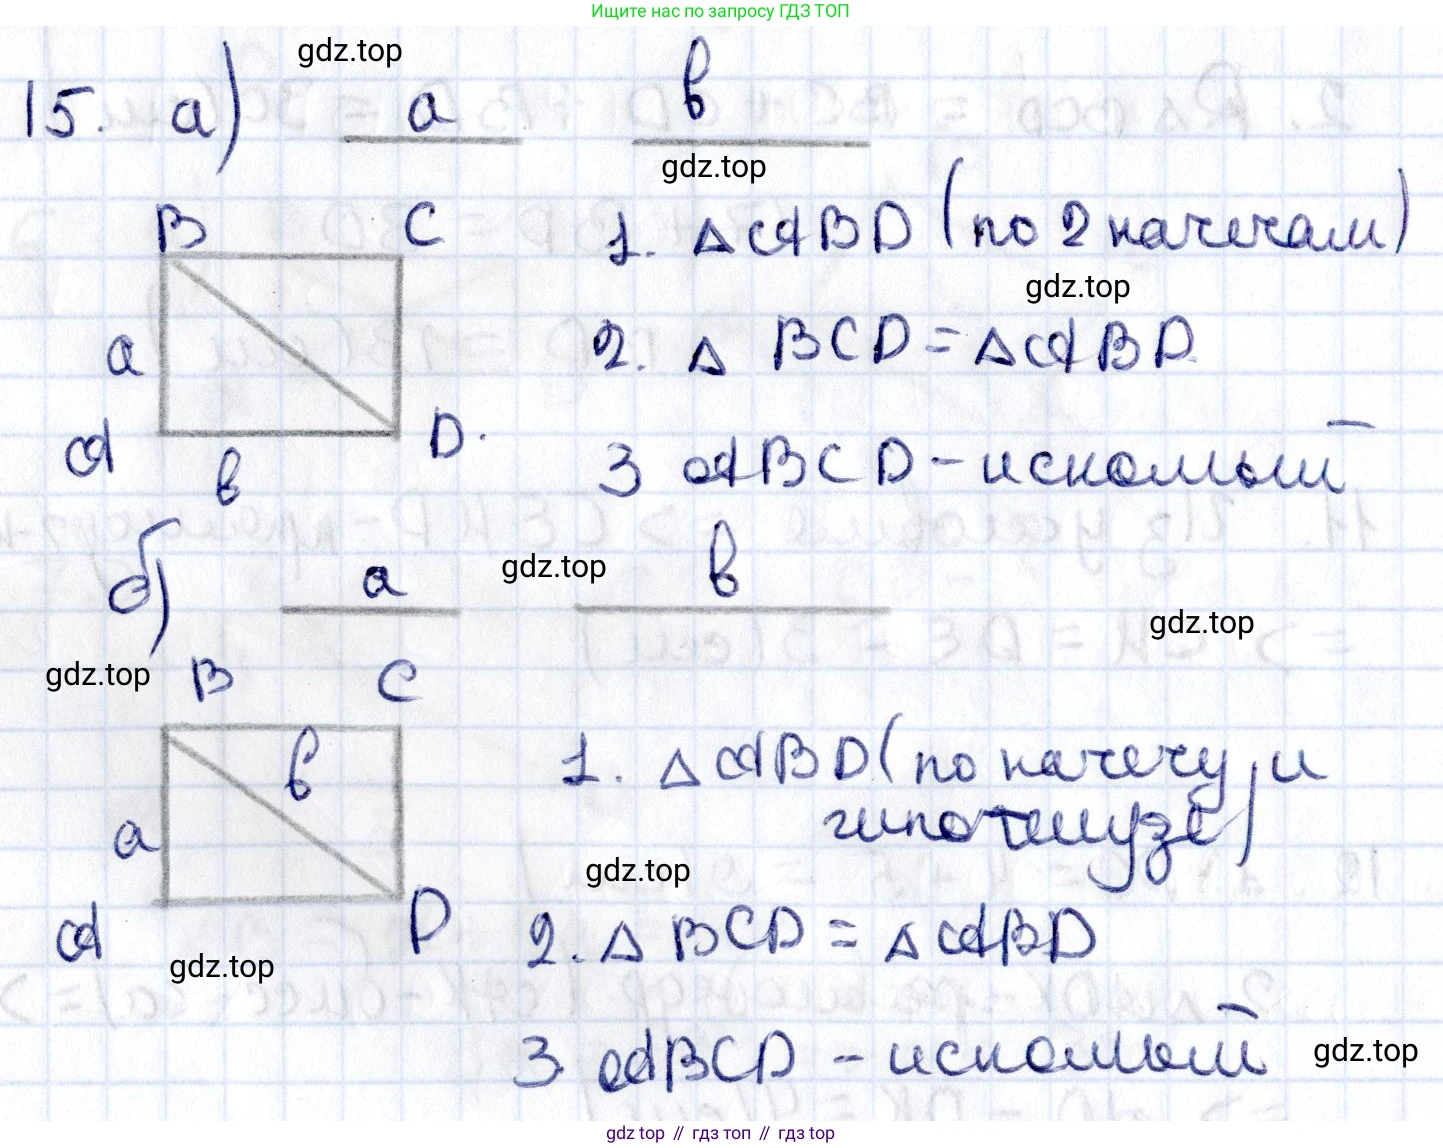 Ищите нас по запросу ГДЗ ТОП
gdz.top
15. а) a в
gdz.top
B C
1. △ABD (по 2 катетам)
gdz.top
a
2. △ BCD = △ABD.
A D.
в
3 ABCD - искомый
б) a gdz.top в
gdz.top
gdz.top B C
в
1. △ABD (по катету и
гипотенузе)
a
gdz.top
A D
2. △ BCD = △ABD
gdz.top
3. ABCD - искомый
gdz.top
gdz top // гдз топ // gdz top